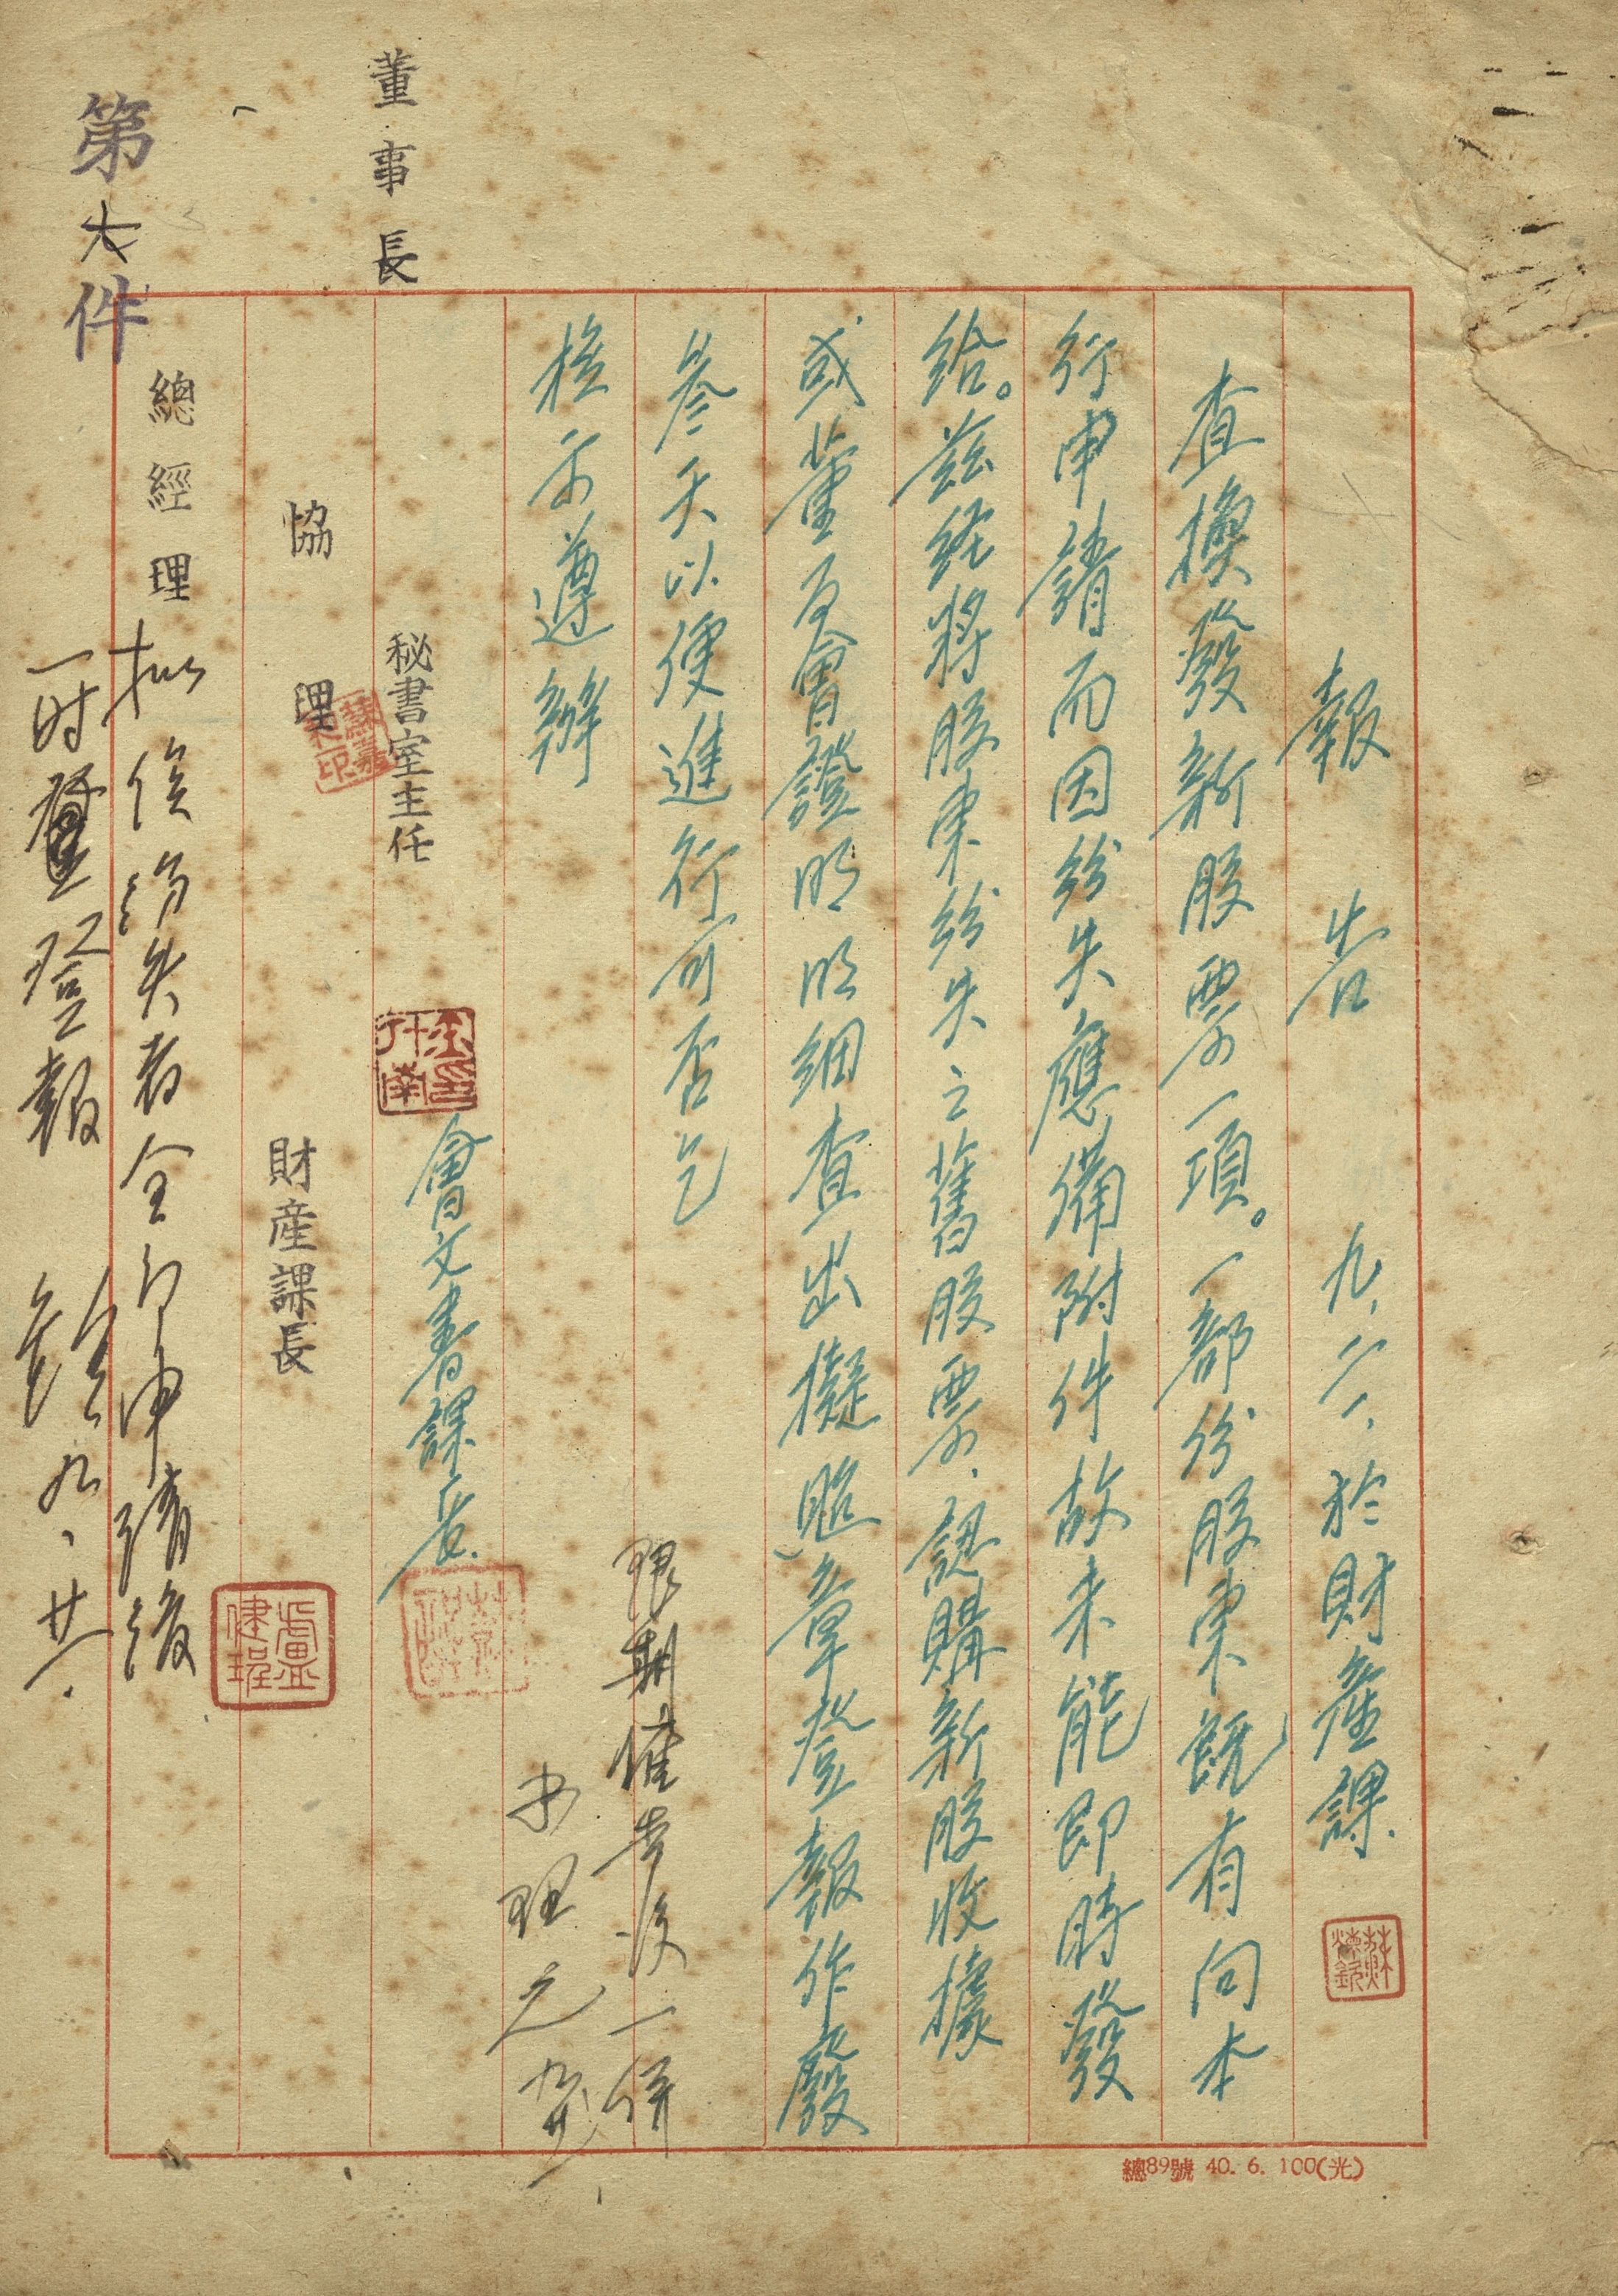 報告 九、六、於財產課
查換發新股票一項。一部份股東既有向本
行申請而因紛失應備附件故未能即時發
給。茲經將股東紛失之舊股票、認購新股收據
或董監會證明明細查出擬照章登報作廢
參天以便進行可否乞
核示遵辦
限期催告後一併
办理之
會文書課長
秘書室主任
協理
財産課長
總經理
拟俟紛失者全部申請後
一时登報
九、廿一.
董事長
第六件
總89號 40. 6. 100(光)